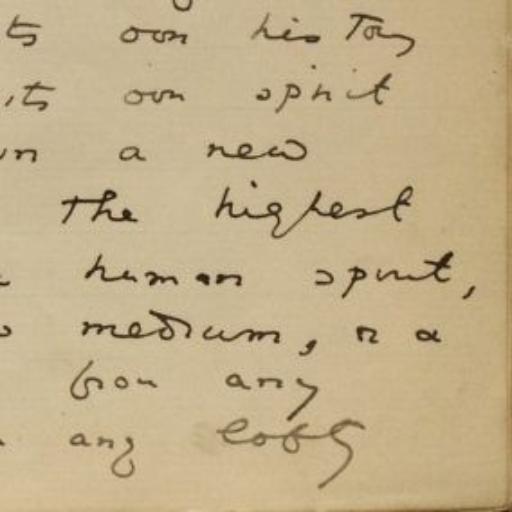 its own history
its own spirit
in a new
the highest
human spirit,
medium, or a
from any
any lofty